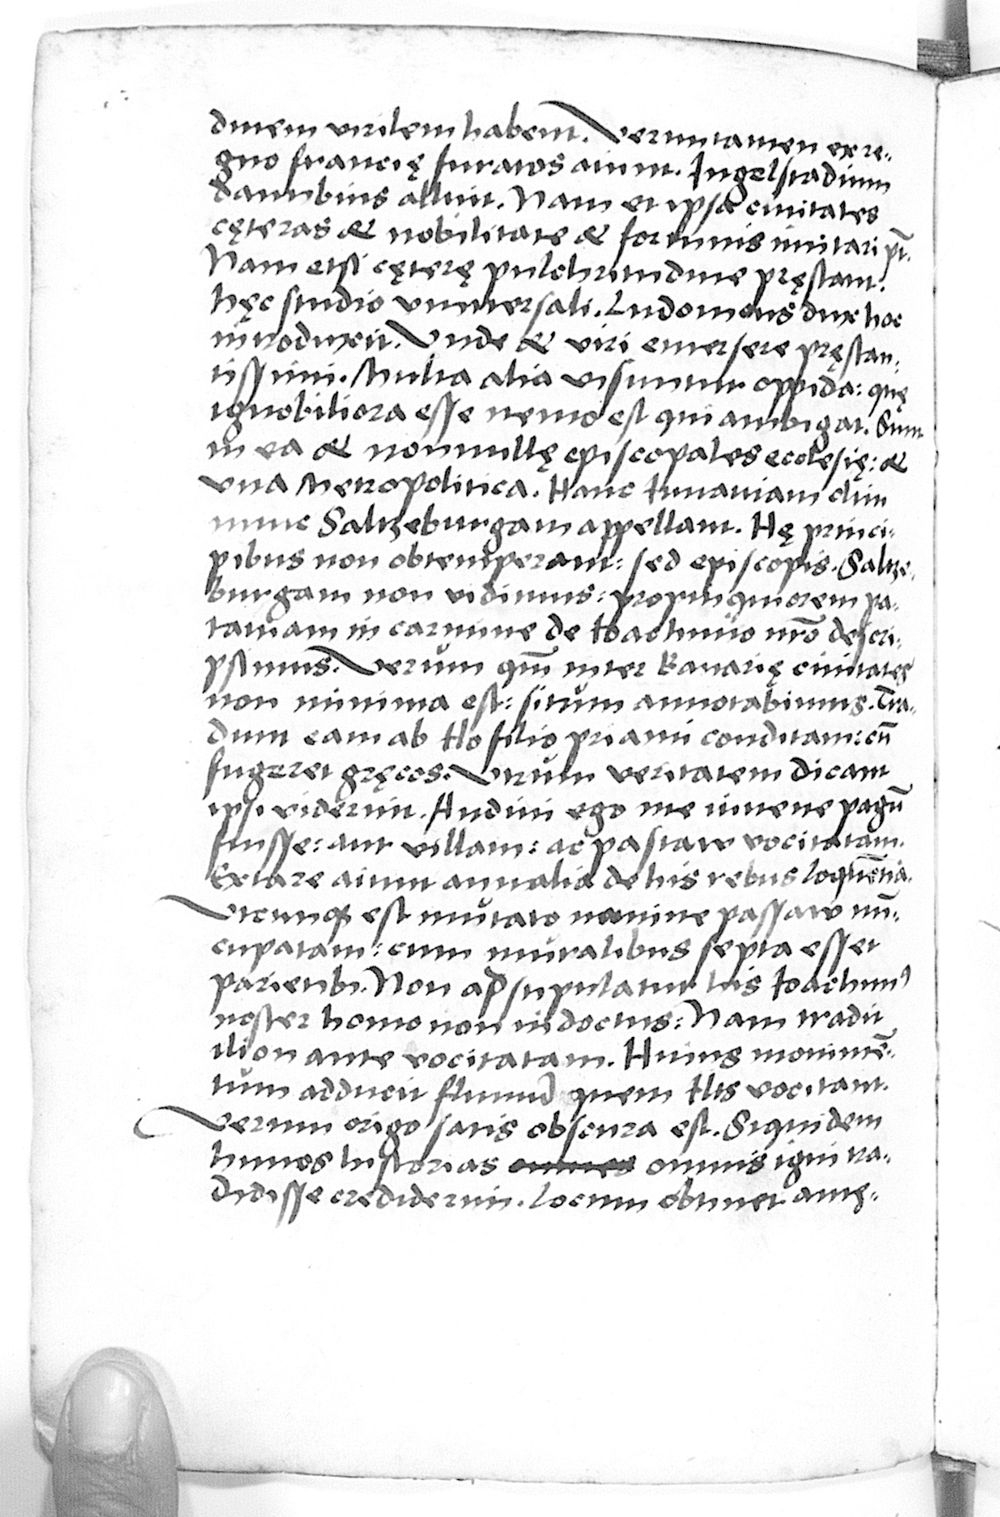 dinem virilem habent. Veruntamen ex re-
gno francię furatos aiunt. Ingelstadium
danubius alluit. Nam et ipsa ciuitates
cęteras & nobilitate & fortunis imitari pt̄.
Nam etsi cęterę pulchritudine pręstant:
hęc studio vniuersali. Ludouicus dux hoc
introduxit. Vnde & viri emersere pręstan-
tissimi. Multa alia visuntur oppida: quę
ignobiliora esse nemo est qui ambigat. Sunt
in ea & nonnullę episcopales ecclesię: &
vna Metropolitica. Hanc Iuuauiam olim
nunc Saltzeburgam appellant. Hę princi-
pibus non obtemperant: sed episcopis. Saltze-
burgam non vidimus: propinquiorem pa-
tauiam in carmine de Ioachimo nr̄o descri-
psimus. Verum qm̄ inter Bauarię ciuitates
non minima est: situm annotabimus. Tra-
dunt eam ab Ilo filio priami conditam: cū
fugeret gręcos. Vtrum veritatem dicant
ipsi viderint. Audiui ego me iuuene pagū
fuisse: aut villam: ac pastaw vocitatam.
Extare aiunt annalia de his rebus loquētia.
Vtcunq3 est mutato nomine passaw nū-
cupatam: cum muralibus septa esset
parietib. Non adstipulatur his Ioachim9
noster homo non indoctus: Nam tradit
ilion ante vocitatam. Huius monimē-
tum adducit flumē quem Ilts vocitant.
Verum origo satis obscura est. Siquidem
hunos historias omnes omnis igni tra-
didisse crediderim. Locum obtinet amę-